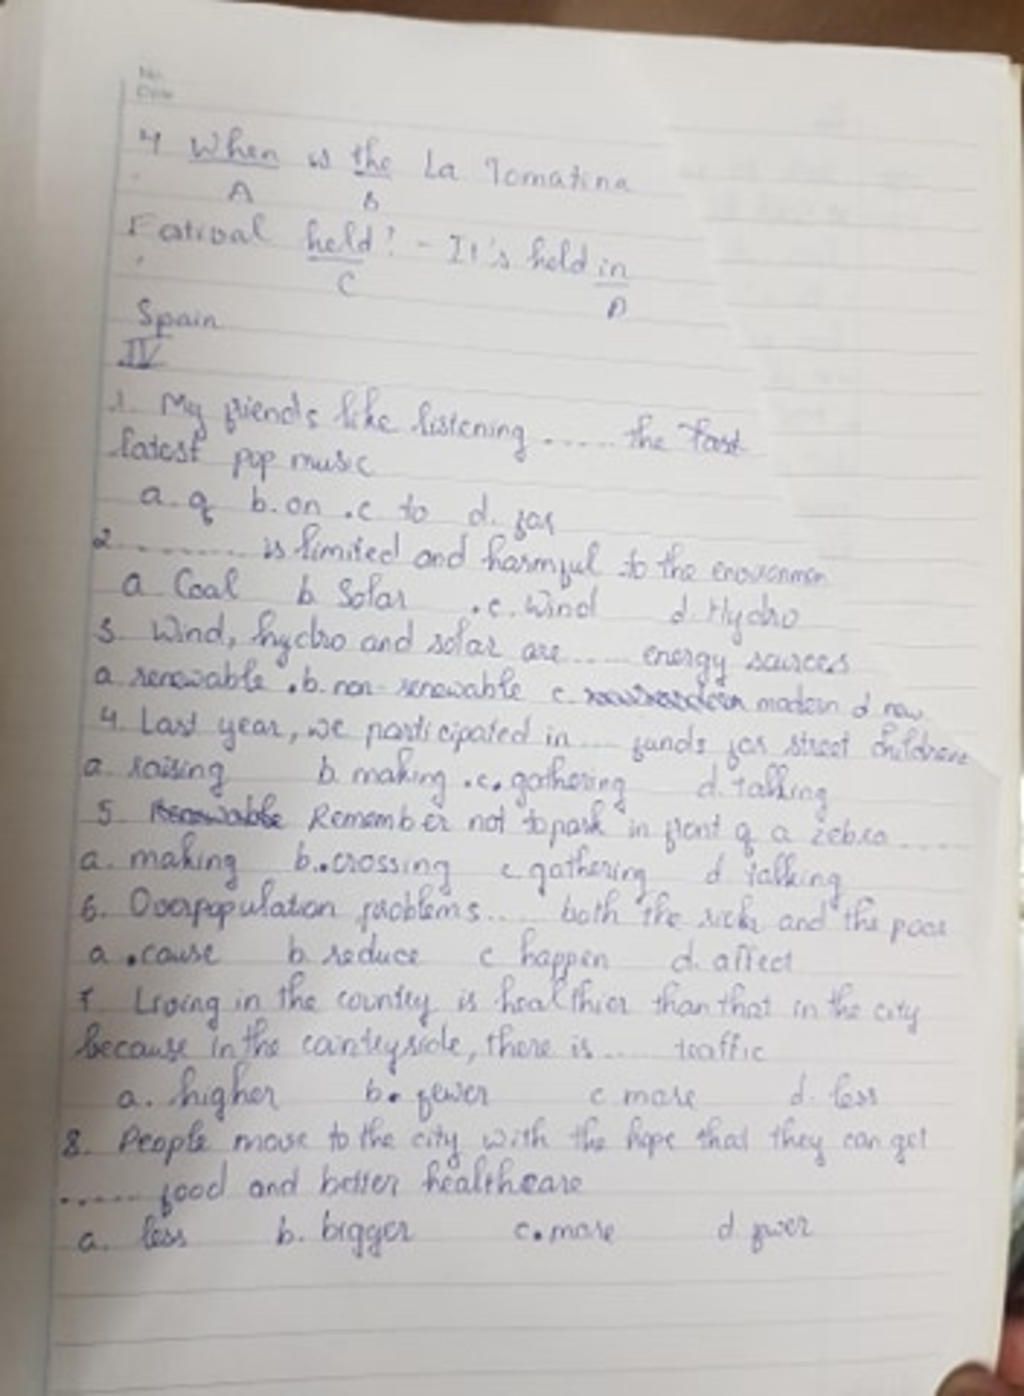 No.
Date
4 When is the La Tomatina
A B
Fatival held? - It's held in
C D
Spain
IV
1. My friends like listening ...... the
latest pop music
a. of b. on .c to d. for
2 .......... is limited and harmful to the
a Coal b. Solar .c. Wind d. Hydro
3. Wind, hydro and solar are ..... energy saurces
a. renewable .b. non-renewable c. modern d new
4. Last year, we participated in .... funds for street children
a. raising b. making .c. gathering d. talking
5. Remember not to park in front of a zebra .....
a. making b. .crossing c gathering d talking
6. Overpopulation problems .... both the rich and the poor
a .cause b. reduce c happen d. affect
7. Living in the country is healthier than that in the city
because in the countryside, there is ..... traffic
a. higher b. fewer c. more d. less
8. People move to the city with the hope that they can get
...... food and better healthcare
a. less b. bigger c. more d. fwer